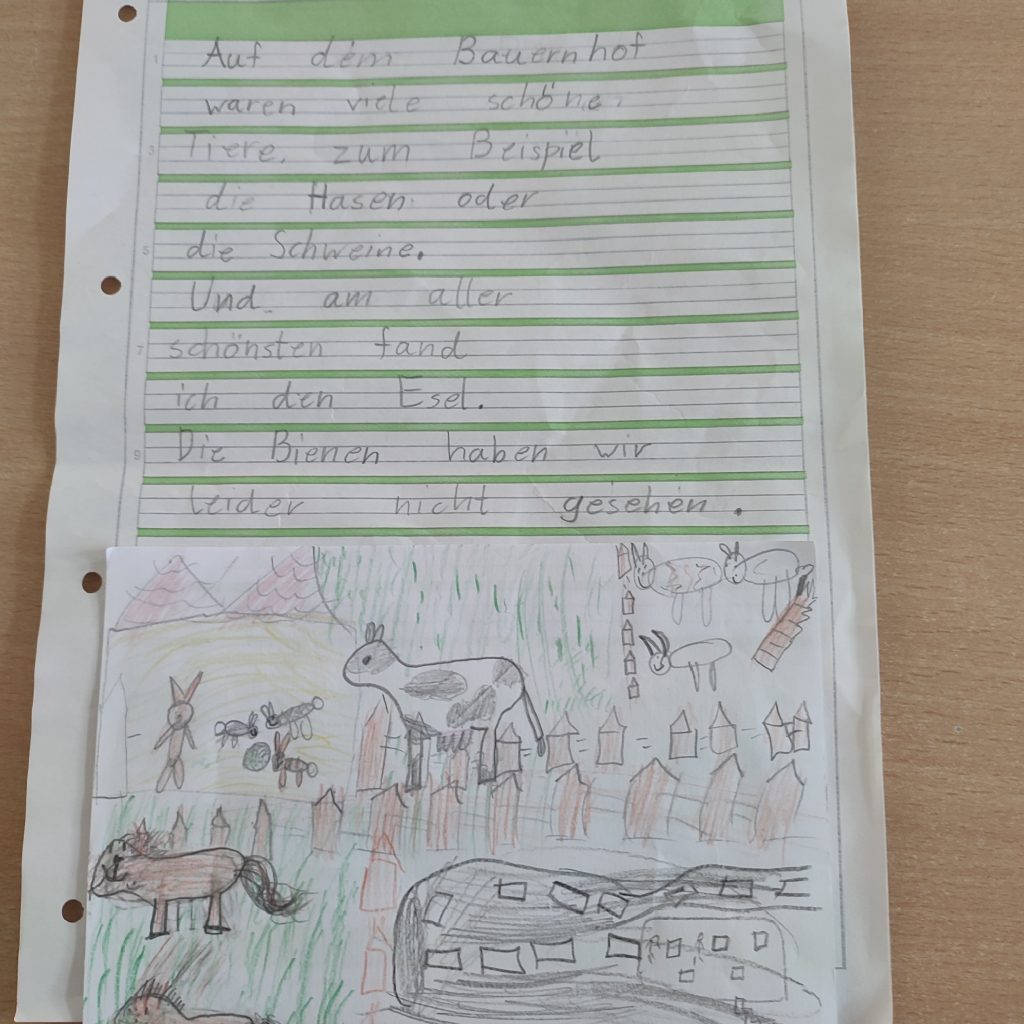 Auf dem Bauernhof
waren viele schöne
Tiere, zum Beispiel
die Hasen oder
die Schweine.
Und am aller
schönsten fand
ich den Esel.
Die Bienen haben wir
leider nicht gesehen.